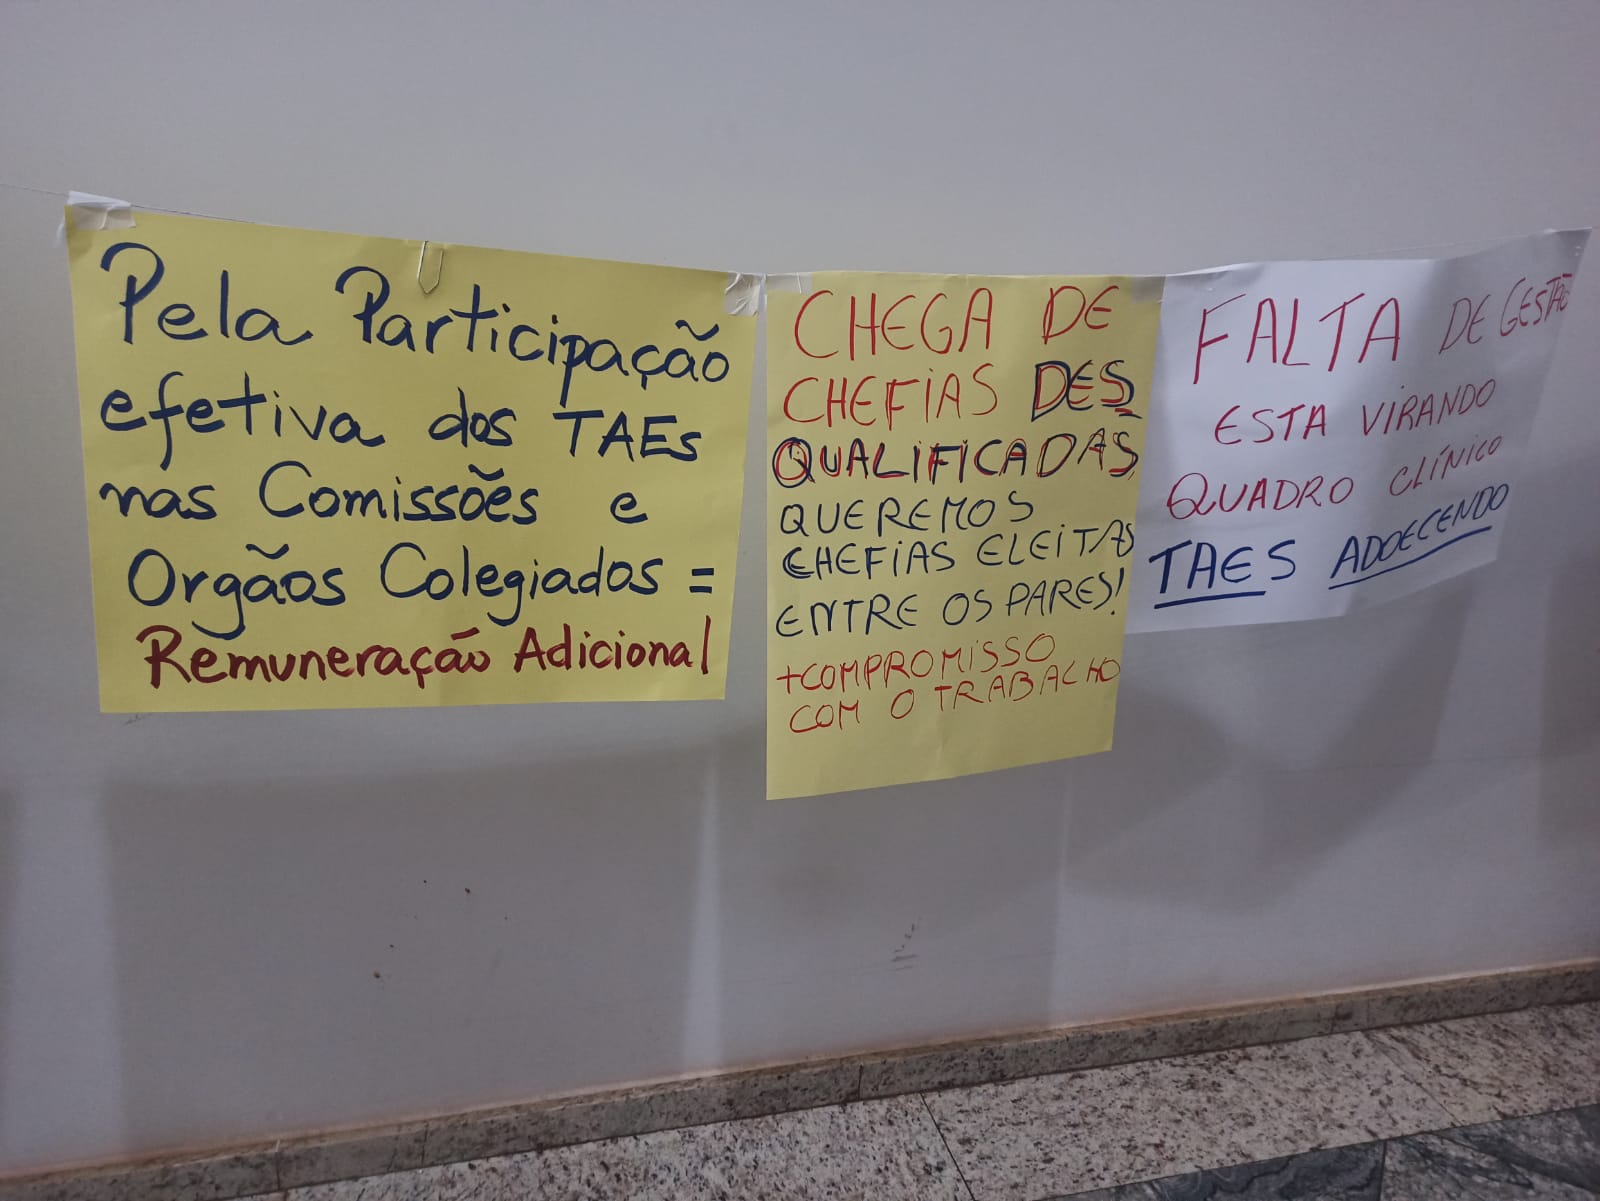 Pela Participação
efetiva dos TAEs
nas Comissões e
Orgãos Colegiados =
Remuneração Adicional
CHEGA DE
CHEFIAS DES
QUALIFICADAS,
QUEREMOS
CHEFIAS ELEITAS
ENTRE OS PARES!
+COMPROMISSO
COM O TRABALHO
FALTA DE GESTÃO
ESTA VIRANDO
QUADRO CLÍNICO
TAES ADOECENDO